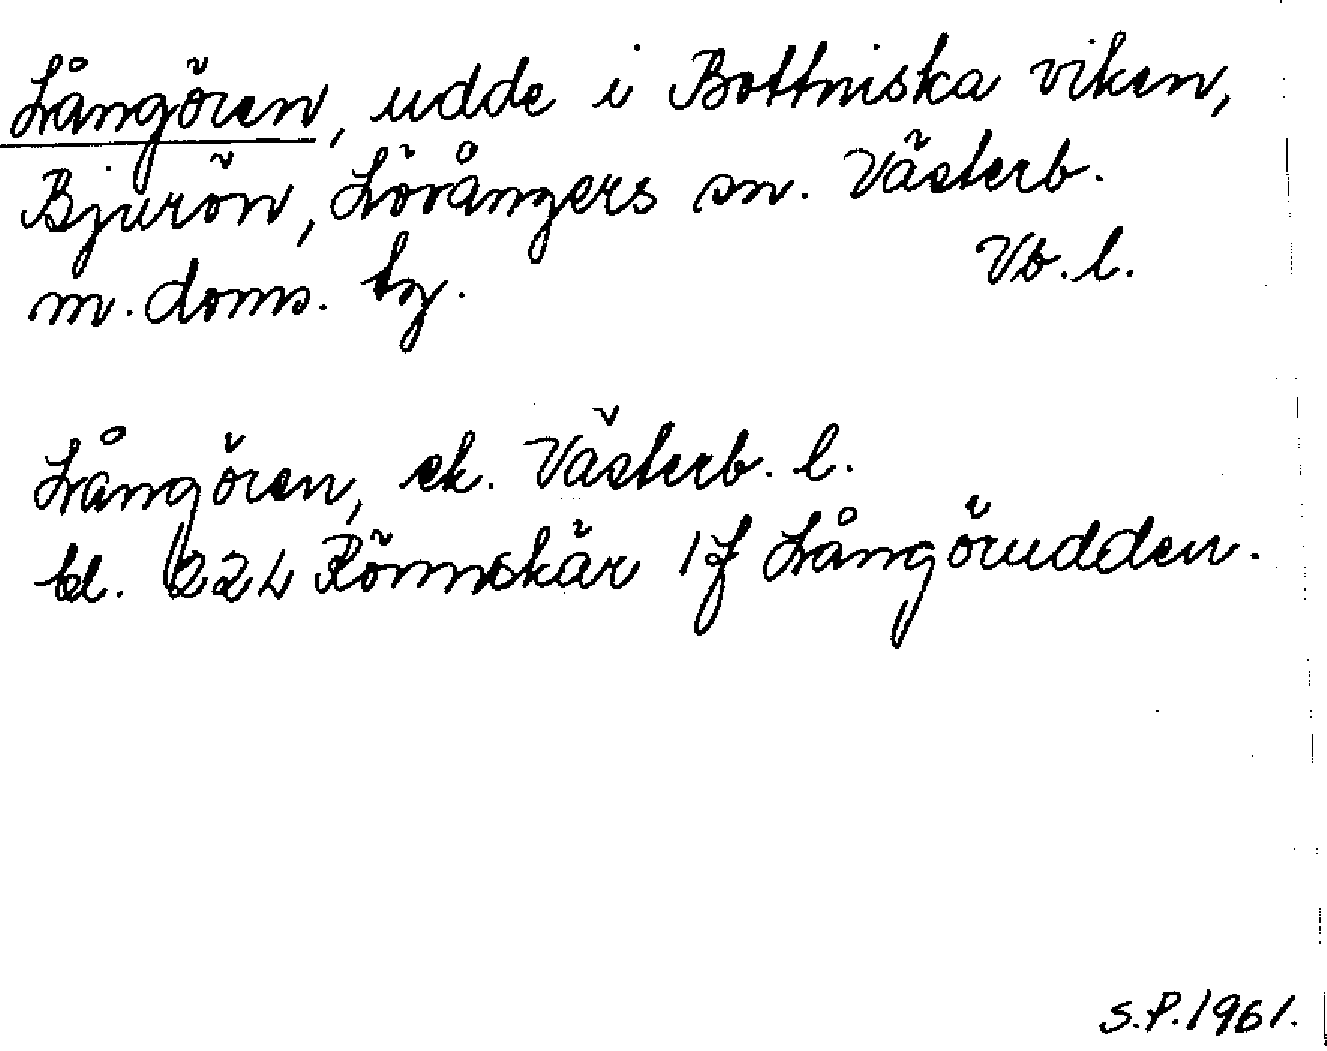 Långören, udde i Bottniska viken,
Bjurön, Lövångers sn. Västerb.
m. doms. tg. Vb. l.
Långören, ek. Västerb. l.
bl. 22L Rönnskär 1f Långörudden.
S.P.1961.